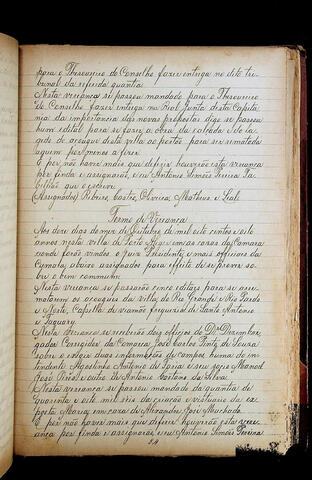 para o Thesoureiro do Conselho fazer entrega no dito tri-
bunal da referida quantia
Nesta vereança se passou mandado para o Thesoureiro
do Conselho fazer entrega na Real Junta desta Capita-
nia da importancia das novas propostas digo se passou
hum edital para se fazer a obra da calçada e de la
gide do acougue desta villa ao porto, para se rematada
a quem por menos a fizer
E por não haver mais que deferir houverão esta vereança
por finda e assignarão, eu Antonio Simões Pereira Ta-
bellião que o escrevi
(Assignados) Ribeiro, Castro, Oliveira, Matheus e Leal
Termo de Vereança
Aos dois dias do mez de Outubro de mil oito centos e oito
annos nesta villa de Porto Alegre em as casas da Camara
onde forão vindos o Juiz Presidente e mais officiaes da
Camara, abaixo assignados para effeito de se prover so-
bre o bem commum
Nesta vereança se passarão cinco editaes para se ar-
rematarem os açougues da villa, do Rio Grande e Rio Pardo
e Norte, Capella de Viamão freguezias de Santo Antonio
e Taquary
Nesta Vereança se receberão dois officios do Dr. Dezembar-
gador Corregedor da Comarca José Carlos Pinto de Souza
sobre o exigir duas informações de campos huma do in-
tendente Agostinho Antonio de Faria e seu socio Manoel
José Pires e outro de Antonio Caetano da Silva
Nesta vereança se passou mandado da quantia de
quarenta e oito mil reis da criação e vestuario da ex-
posta Maria, em casa de Alexandre José Machado
E por não haver mais que deferir houverão esta vere-
ança por finda e assignarão, eu Antonio Simões Pereira